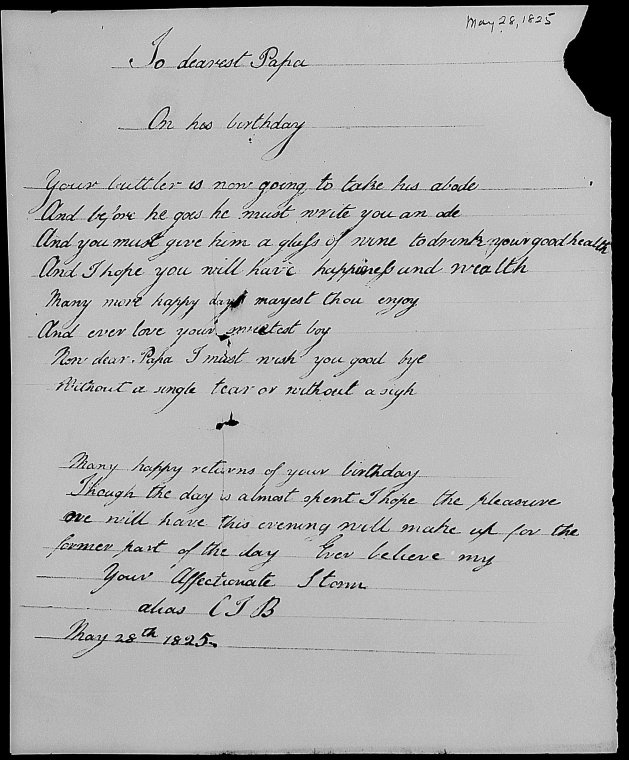 May 28, 1825
To dearest Papa
On his birthday
Your buttler is now going to take his abode
And before he goes he must write you an ode
And you must give him a glass of wine to drink your good health
And I hope you will have happiness and wealth
Many more happy days mayest thou enjoy
And ever love your sweetest boy
Now dear Papa I must wish you good bye
Without a single tear or without a sigh
Many happy returns of your birthday
Though the day is almost spent I hope the pleasure
we will have this evening will make up for the
former part of the day Ever believe my
Your Affectionate Storm
alias C J B
May 28th 1825.